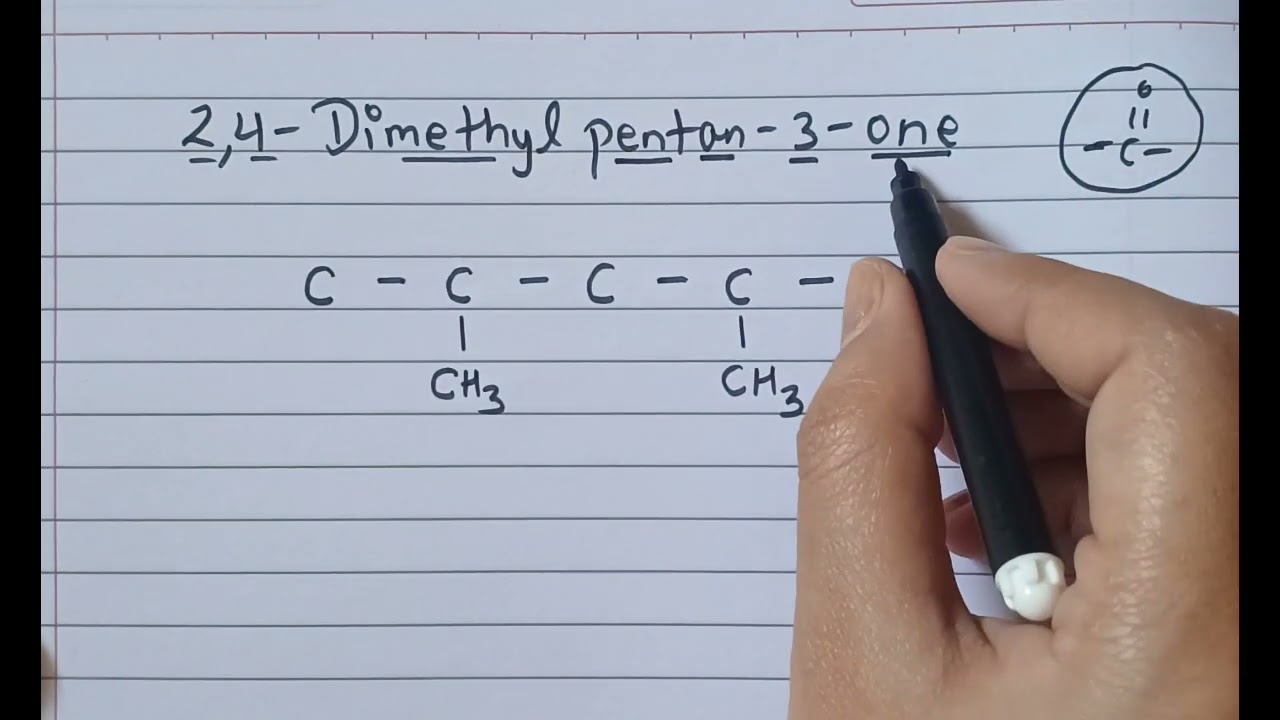 2,4-Dimethyl pentan-3-one
O
||
-C-
C - C - C - C -
| |
CH3 CH3